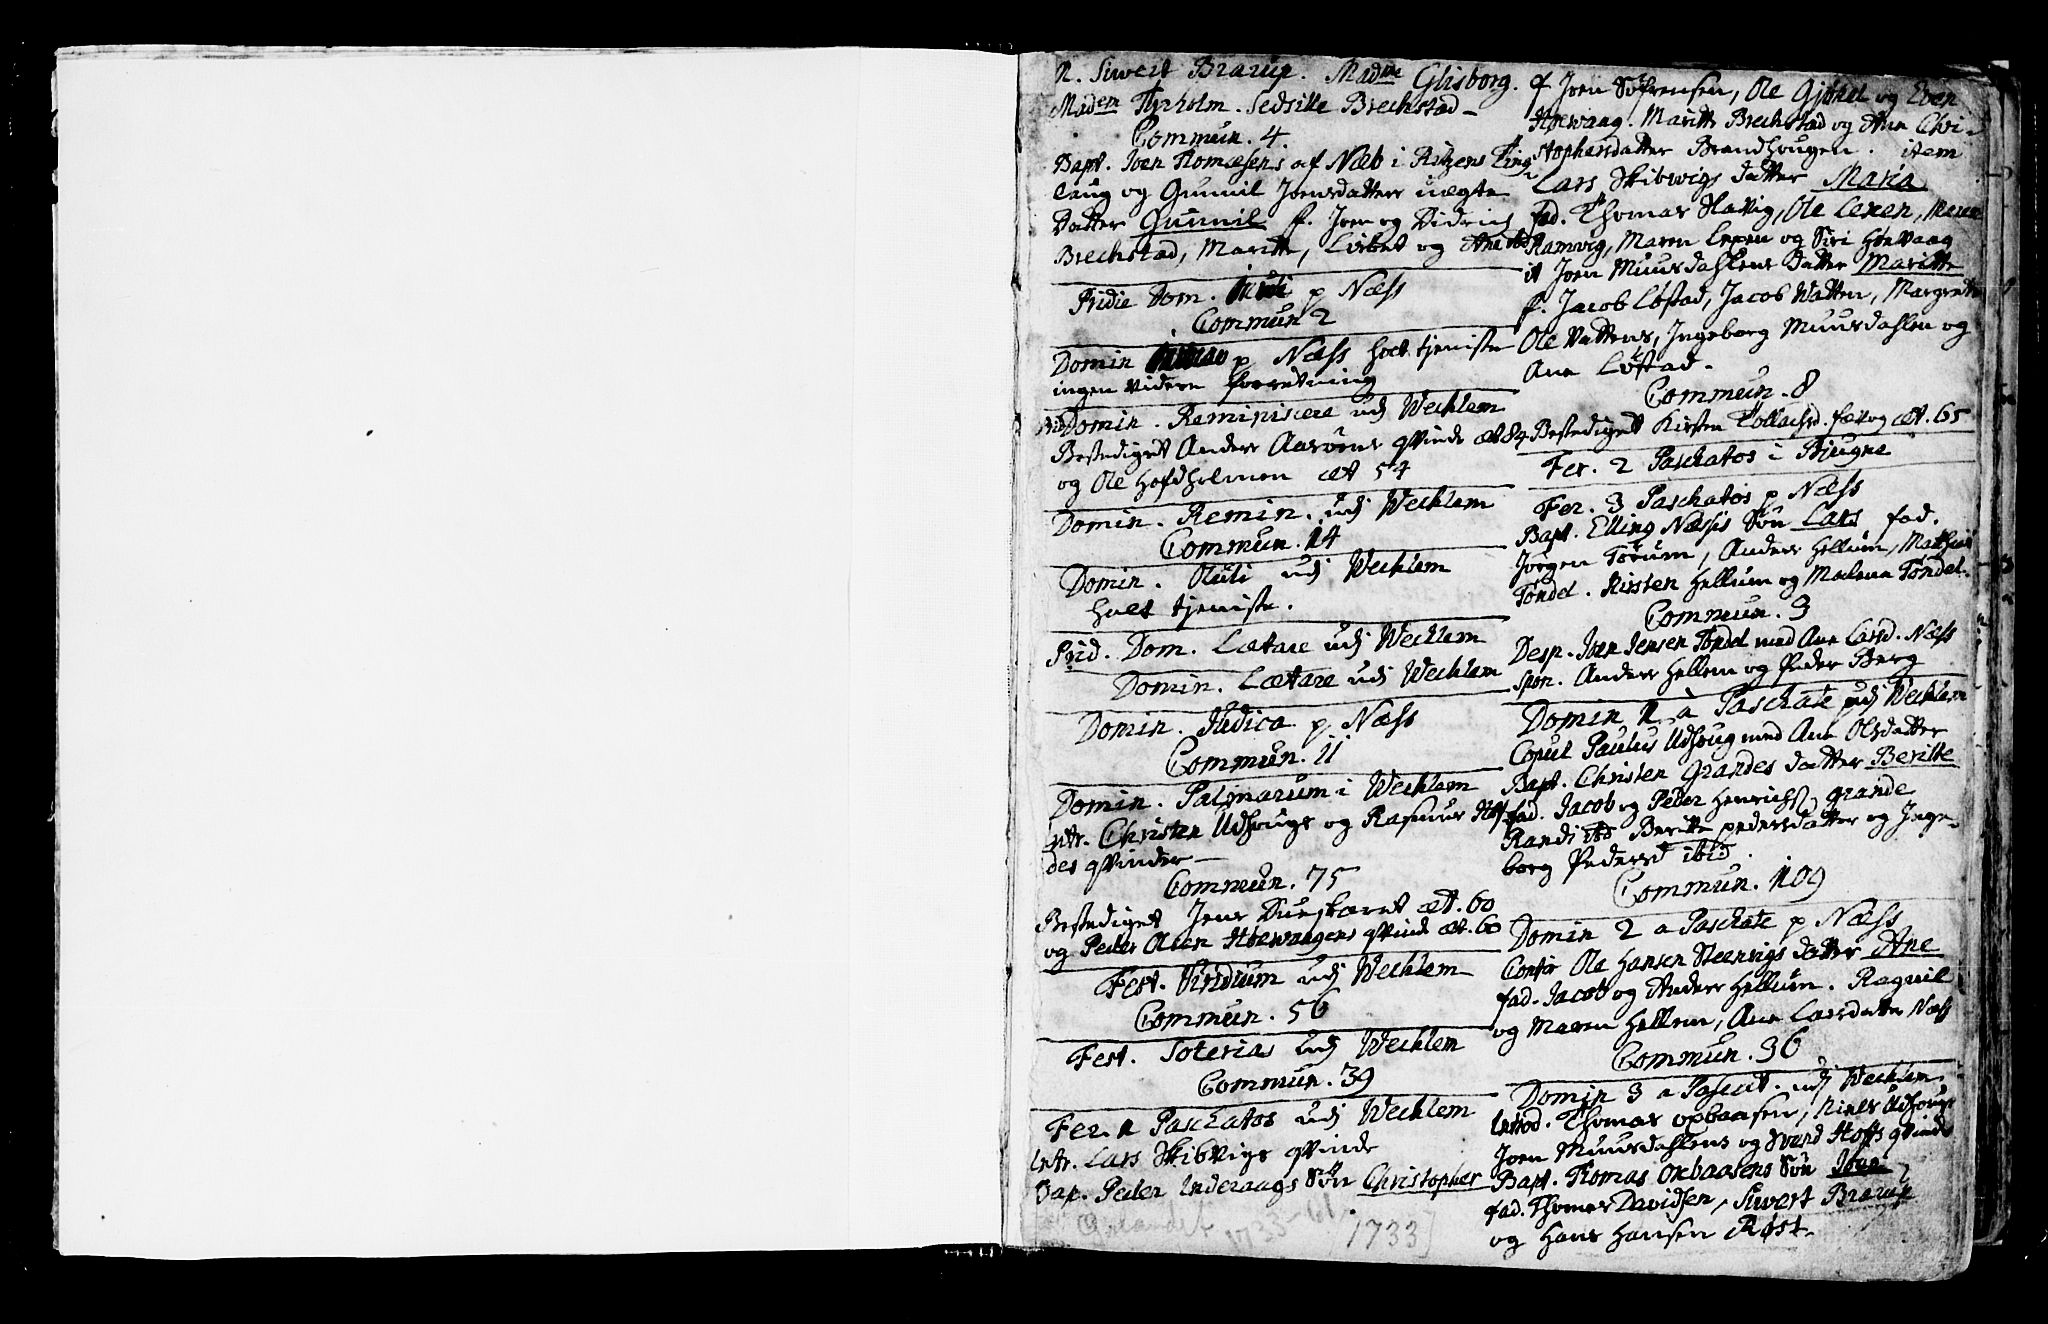 N. Siwert Brarup. Mad.me Glisborg.
Madem Thrholm. Sedsille Brechstad –
Commun. 4.
Bapt. Joen Thomæsens af Næb i Ritzens Ting
laug og Gunnil Joensdatters uægte
Datter Gunnil f. Joen og Didrich
Brechstad, Maritte, Lisbet og Ane ibd
Pridie Dom. p Næss
Commun 2
Domin p Næss holt tjeniste
ingen videre forretning
Domin. Reminiscere udj Wechlem
Bestediget Anders Aasøens qvinde æt 84
og Ole Hofdholmen æt 54
Domin. Remin. udj Wechlem
Commun. 14
Domin. Oculi udj Wechlem
holt tjeniste.
Prid. Dom. Lætare udj Wechlem
Domin. Lætare udj Wechlem
Domin. Judica p Næss
Commun. 11
Domin. Palmarum i Wechlem
Intr. Christen Udhougs og Rasmus
des qvinder –
Commun. 75
Bestediget Jens Dueskaret æt. 60
og Peder Olsen Høewangens qvinde æt. 60
Fest. Viridium udj Wechlem
Commun. 56
Fest. Soterias udj Wechlem
Commun. 39
Fer. 1 Paschatos udj Wechlem
Intr. Lars Skibvigs qvinde
Bap. Peder Inderaags Søn Christopher
Ørlandet 1733-61
1733]
f Joen Søfrensen, Ole Gjøhel og Even
Høewaag. Maritte Brechstad og Ane Chri-
stophersdatter Brandhougen. item
Lars Skibwigs datter Maria
fad. Thomas Havig, Ole Lexen, Maren
Ramvig, Maren Lexen og Siri Høewaag
it Joen Muusdahlens Datter Maritte
f. Jacob Løstad, Jacob Watten, Margrette
Ole Vattens, Ingeborg Muusdahlen og
Ane Løfstad.
Commun. 8
Bestediget Kirsten Tollachsd. fattig æt. 65
Fer. 2 Paschatos i Bjugne
Fer. 3 Paschatos p Næss
Bapt. Elling Næssis Søn Lars fad.
Jørgen Torum, Anders Hellum, Mathias
Tøndel. Kirsten Hellum og Malena Tøndel.
Commun. 3
Desp. Joen Jensen Tøndel med Ane Larsd. Næss
spon. Anders Hellem og Peder Berg
Domin 1 a Paschate udj Wechlem
Copul Paulus Udhoug med Ane Olsdatter
Bapt. Christen Grandes datter Beritte
fad. Jacob og Peder Henrichs. grande
Randi ibd Beritte pedersdatter og Inge-
borg Pedersd ibid.
Commun. 109
Domin 2 a Paschate p Næss
Confir Ole Hansen Steenvigs datter Ane
fad. Jacob og Anders Hellum. Ragnil
og Maren Hellem, Ane Larsdatter Næss
Commun. 36
Domin 3 a Pascat. udj Wechlem
Introd. Thomas opbaasen, Niels Udhougs
Joen Muusdahlens og Svend Hoffs qvinde
Bapt. Thomas Oxbaasens Søn Joen
fad. Thomas Davidsen, Siwert Brarup
og Hans Hansen Røst.